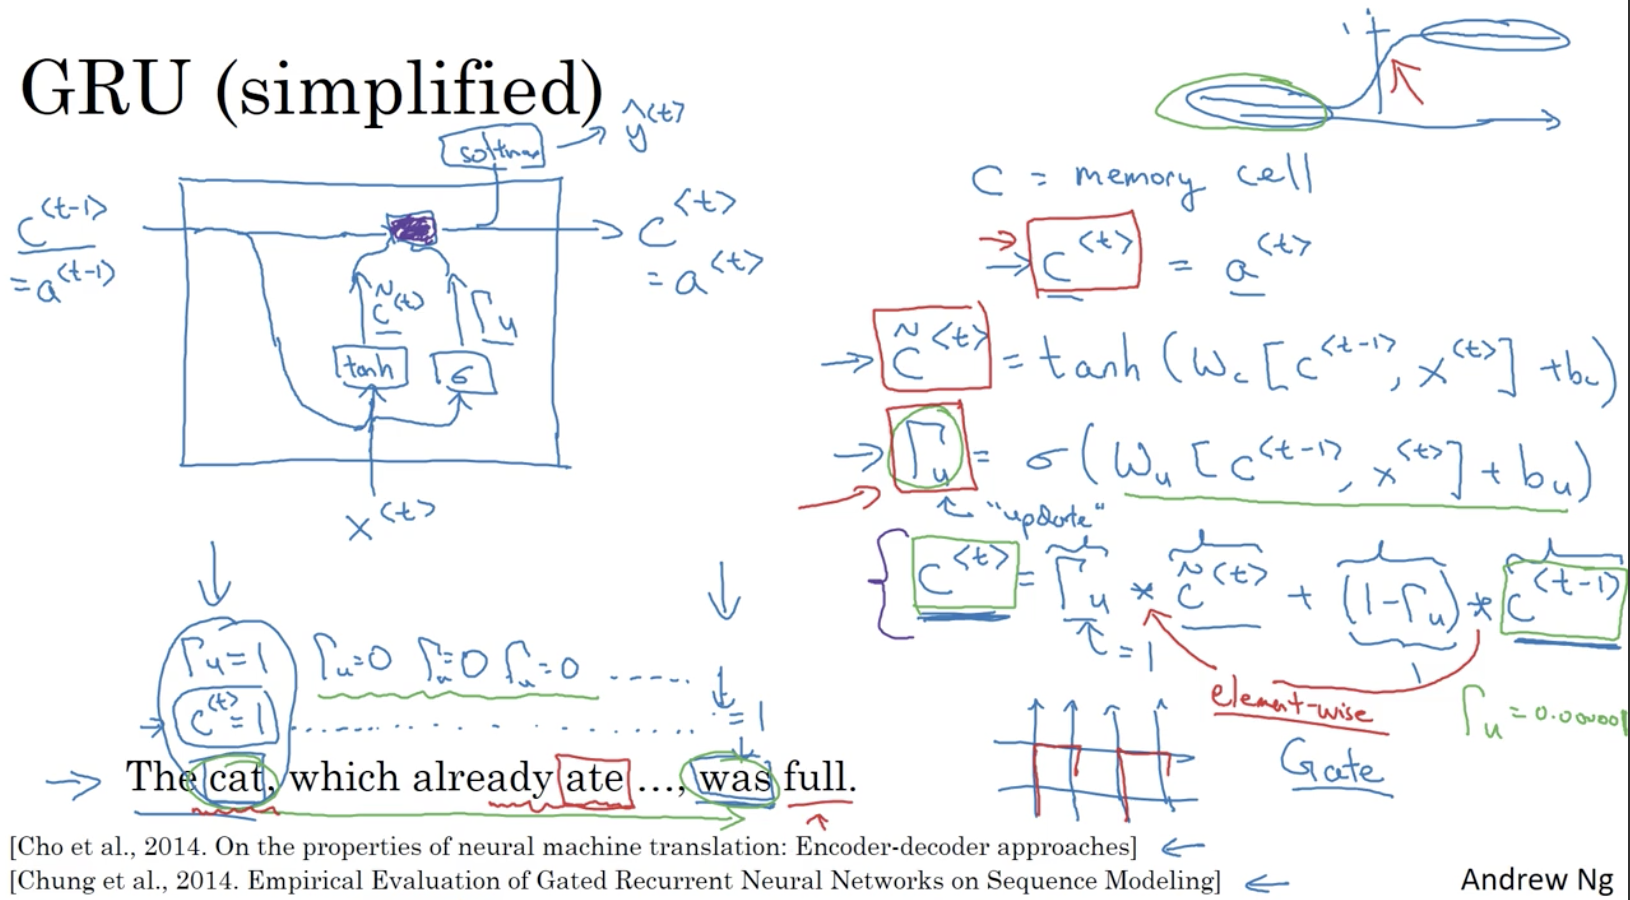 GRU (simplified)
softmax → ŷ^{<t>}
c^{<t-1>}
= a^{<t-1>}
c^{<t>}
= a^{<t>}
c̃^{<t>}
Γ_u
tanh
σ
x^{<t>}
C = memory cell
c^{<t>} = a^{<t>}
c̃^{<t>} = tanh (W_c [c^{<t-1>}, x^{<t>}] + b_c)
Γ_u = σ (W_u [c^{<t-1>}, x^{<t>}] + b_u)
"update"
c^{<t>} = Γ_u * c̃^{<t>} + (1-Γ_u) * c^{<t-1>}
= 1
element-wise
Γ_u = 0.000001
Gate
Γ_u = 1 Γ_u = 0 Γ_u = 0 Γ_u = 0 .....
c^{<t>} = 1 ..... = 1
The cat, which already ate ..., was full.
[Cho et al., 2014. On the properties of neural machine translation: Encoder-decoder approaches] ←
[Chung et al., 2014. Empirical Evaluation of Gated Recurrent Neural Networks on Sequence Modeling] ←
Andrew Ng